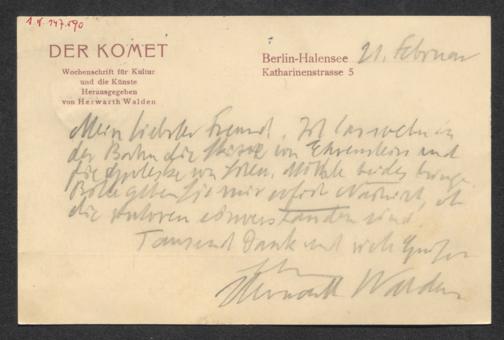 1. N. 147.690
DER KOMET
Wochenschrift für Kultur
und die Künste
Herausgegeben
von Herwarth Walden
Berlin-Halensee 21. Februar
Katharinenstrasse 5
Mein liebster Freund, Ich las soeben in
der Bahn die Skizze von Ehrenstein und
die von . Möchte beides bringen.
Bitte geben Sie mir sofort Nachricht, ob
die Autoren einverstanden sind.
Tausend Dank und viele Grüsse
Ihr
Herwarth Walden